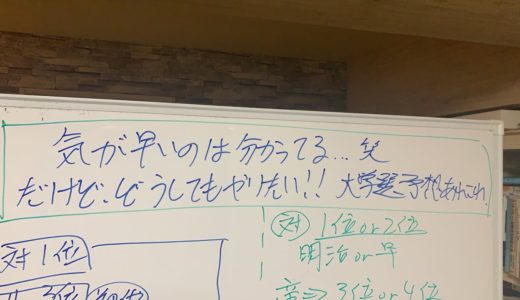 気が早いのは分かってる…笑
だけど、どうしてもやりたい!! 大学選予想あれこれ
対1位
対 1位or2位
明治or早
3位or4位